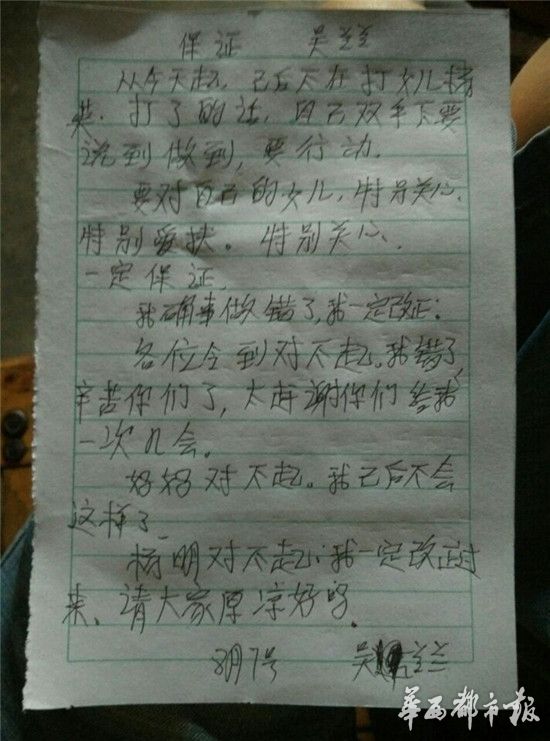 保证 吴兰兰
从今天起,己后不在打女儿杨
打了的话,自己双手下要
说到做到,要行动.
要对自己的女儿,特别关心.
特别爱扶。特别关心.
一定保证.
我确事做错了,我一定改正:
各位令到对不起。我错了,
辛苦你们了,太谢你们给我
一次几会。
好好对不起。我己后不会
这样了.
杨明对不起:我一定改正过
来、请大家原凉好吗.
8月7号 吴兰兰
华西都市报